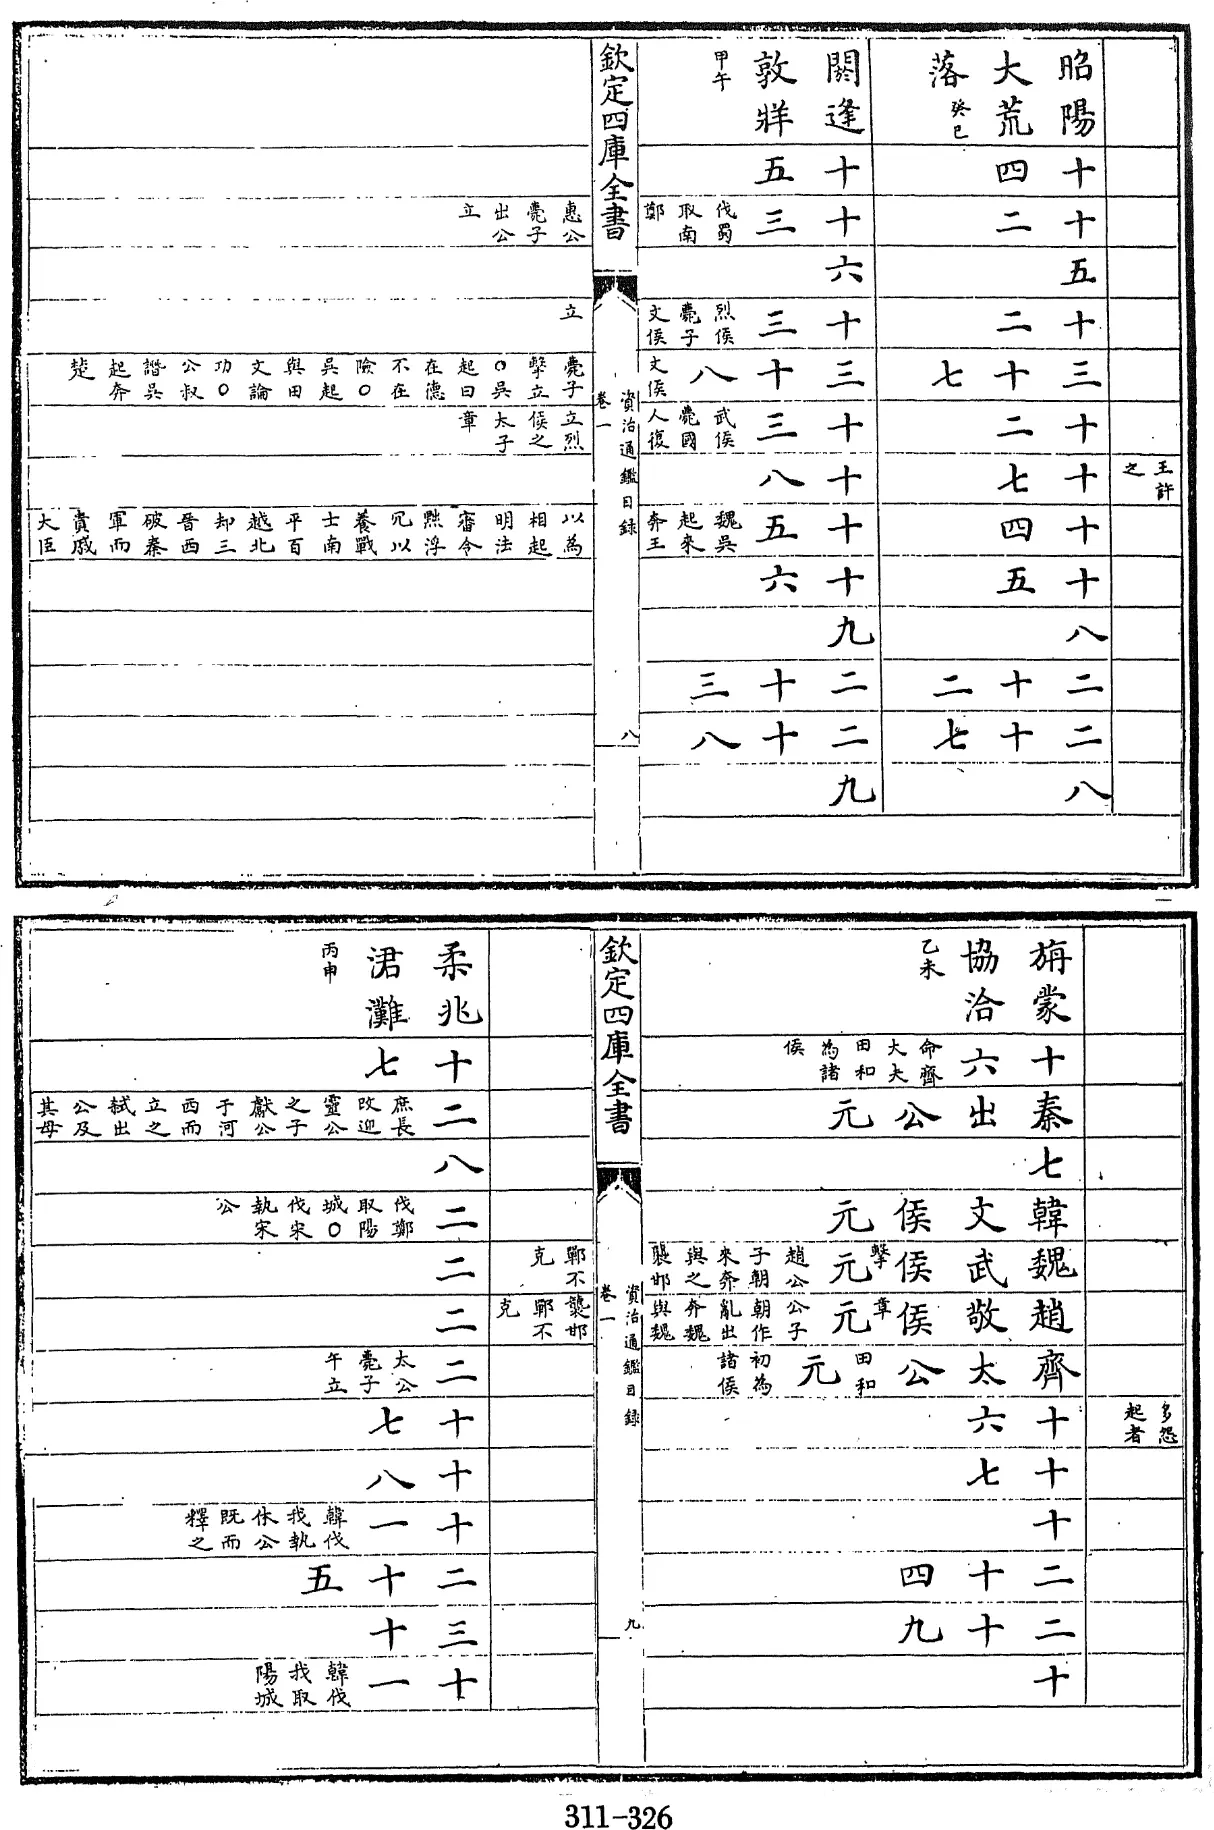 王許之
昭陽大荒落癸巳
十四
十二
五
十二
三十七
十二
十七
十四
十五
八
二十二
二十七
八
閼逢敦牂甲午
十五
十三伐蜀取南鄭
六
十三烈侯薨子文侯
三十八文侯
十三武侯薨國人復
十八
十五魏吳起來奔王
十六
九
二十三
二十八
九
欽定四庫全書
資治通鑑目録
卷一
八
惠公薨子出公立
立
薨子擊立○吳起曰在德不在險○吳起與田文論功○公叔譖吳起奔楚
立烈侯之太子章
以為相起明法審令黜浮冗以養戰士南平百越北却三晉西破秦軍而貴戚大臣
多怨起者
旃蒙協洽乙未
十六命齊大夫田和為諸侯
秦出公元
七
韓文侯元
魏武侯擊元趙公子朝來奔與之襲邯
趙敬侯章元公子朝作亂出奔魏與魏
齊太公田和元初為諸侯
十六
十七
十
二十四
二十九
十
欽定四庫全書
資治通鑑目録
卷一
九
鄲不克
襲邯鄲不克
柔兆涒灘丙申
十七
二庶長改迎靈公之子獻公于河西而立之弒出公及其母
八
二伐鄭取陽城○伐宋執宋公
二
二
二太公薨子午立
十七
十八
十一韓伐我執休公既而釋之
二十五
三十
十一韓伐我取陽城
311-326